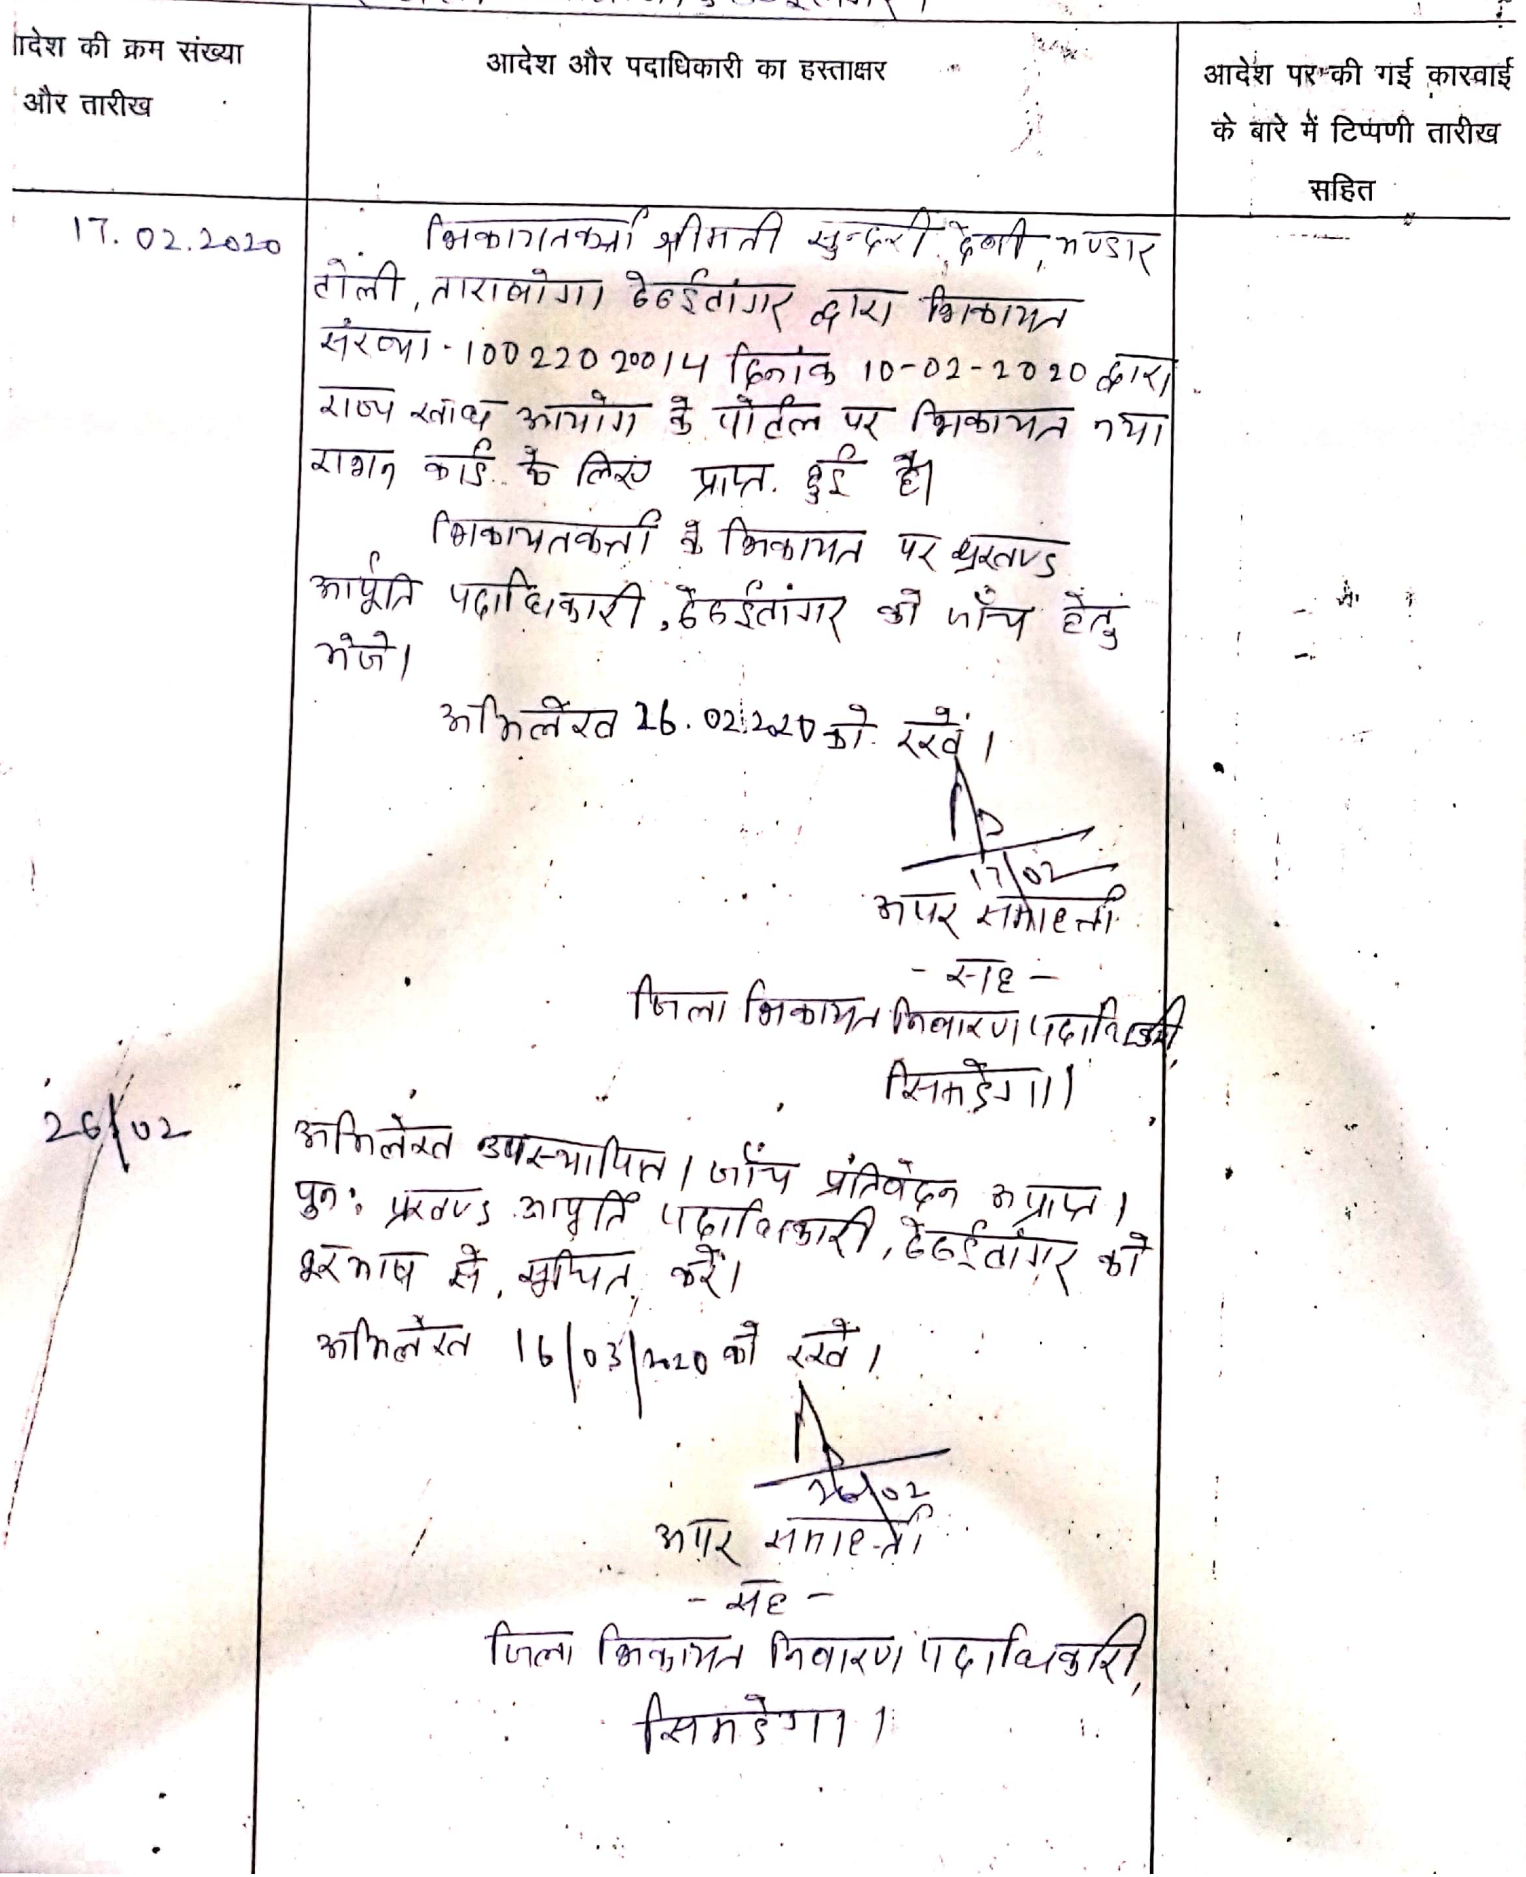 आदेश की क्रम संख्या
और तारीख
आदेश और पदाधिकारी का हस्ताक्षर
आदेश पर की गई कारवाई
के बारे में टिप्पणी तारीख
सहित
17.02.2020
शिकायतकर्त्ता श्रीमती सुन्दरी देवी, भण्डार
टोली, ताराबोगा ठेठईटांगर द्वारा शिकायत
संख्या - 10022020014 दिनांक 10-02-2020 द्वारा
राज्य खाद्य आयोग के पोर्टल पर शिकायत नया
राशन कार्ड के लिए प्राप्त हुई है।
शिकायतकर्त्ता के शिकायत पर प्रखण्ड
आर्पूति पदाधिकारी, ठेठईटांगर को जाँच हेतु
भेजे।
अभिलेख 26.02.2020 को रखें।
17/02
अपर समाहर्त्ता
- सह -
जिला शिकायत निवारण पदाधिकारी,
सिमडेगा।
26/02
अभिलेख उपस्थापित। जाँच प्रतिवेदन अप्राप्त।
पुन: प्रखण्ड आपूर्ति पदाधिकारी, ठेठईटांगर को
दूरभाष से सूचित करें।
अभिलेख 16/03/2020 को रखें।
26/02
अपर समाहर्त्ता
- सह -
जिला शिकायत निवारण पदाधिकारी,
सिमडेगा।